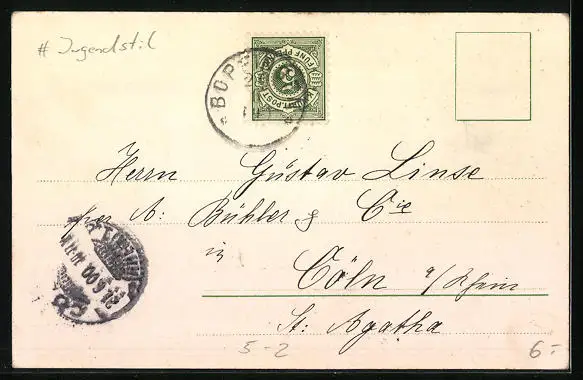 # Jugendstil
BOPF
5
FÜNF PF
K. WÜRTT. POST
Herrn Gustav Linse
per A: Bühler & Cie
in
Cöln a/Rhein
St. Agatha
5-2
6.-